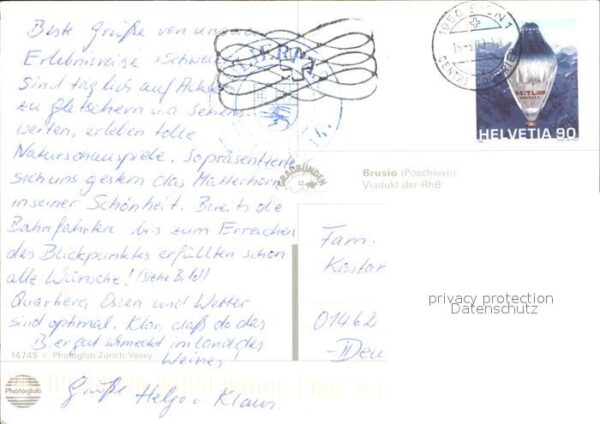 Beste Grüße von unserer
Erlebnisreise »Schweiz
sind täglich auf Achse
zu Gletschern u a Sehens-
werten, erleben tolle
Naturschauspiele. So präsentierte
sich uns gestern das Matterhorn
in seiner Schönheit. Bereits die
Bahnfahrten bis zum Erreichen
des Blickpunktes erfüllten schon
alle Wünsche! (siehe Bild)
Quartiere, Essen und Wetter
sind optimal. Klar, daß da das
Bier gut schmeckt im Land des
Weines!
Grüße Helga u Klaus.
14745 © Photoglob Zürich/Vevey
Photoglob
1950 SION 1
BREITLING
HELVETIA 90
GRAUBÜNDEN
Brusio (Poschiavo)
Viadukt der RhB
Fam.
01462
privacy protection
Datenschutz